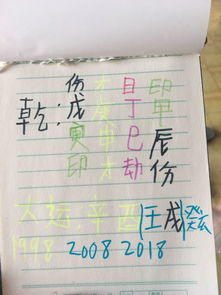 乾:
伤戊寅印
才庚申才
日丁巳劫
印甲辰伤
大运辛酉壬戌癸亥
1998 2008 2018